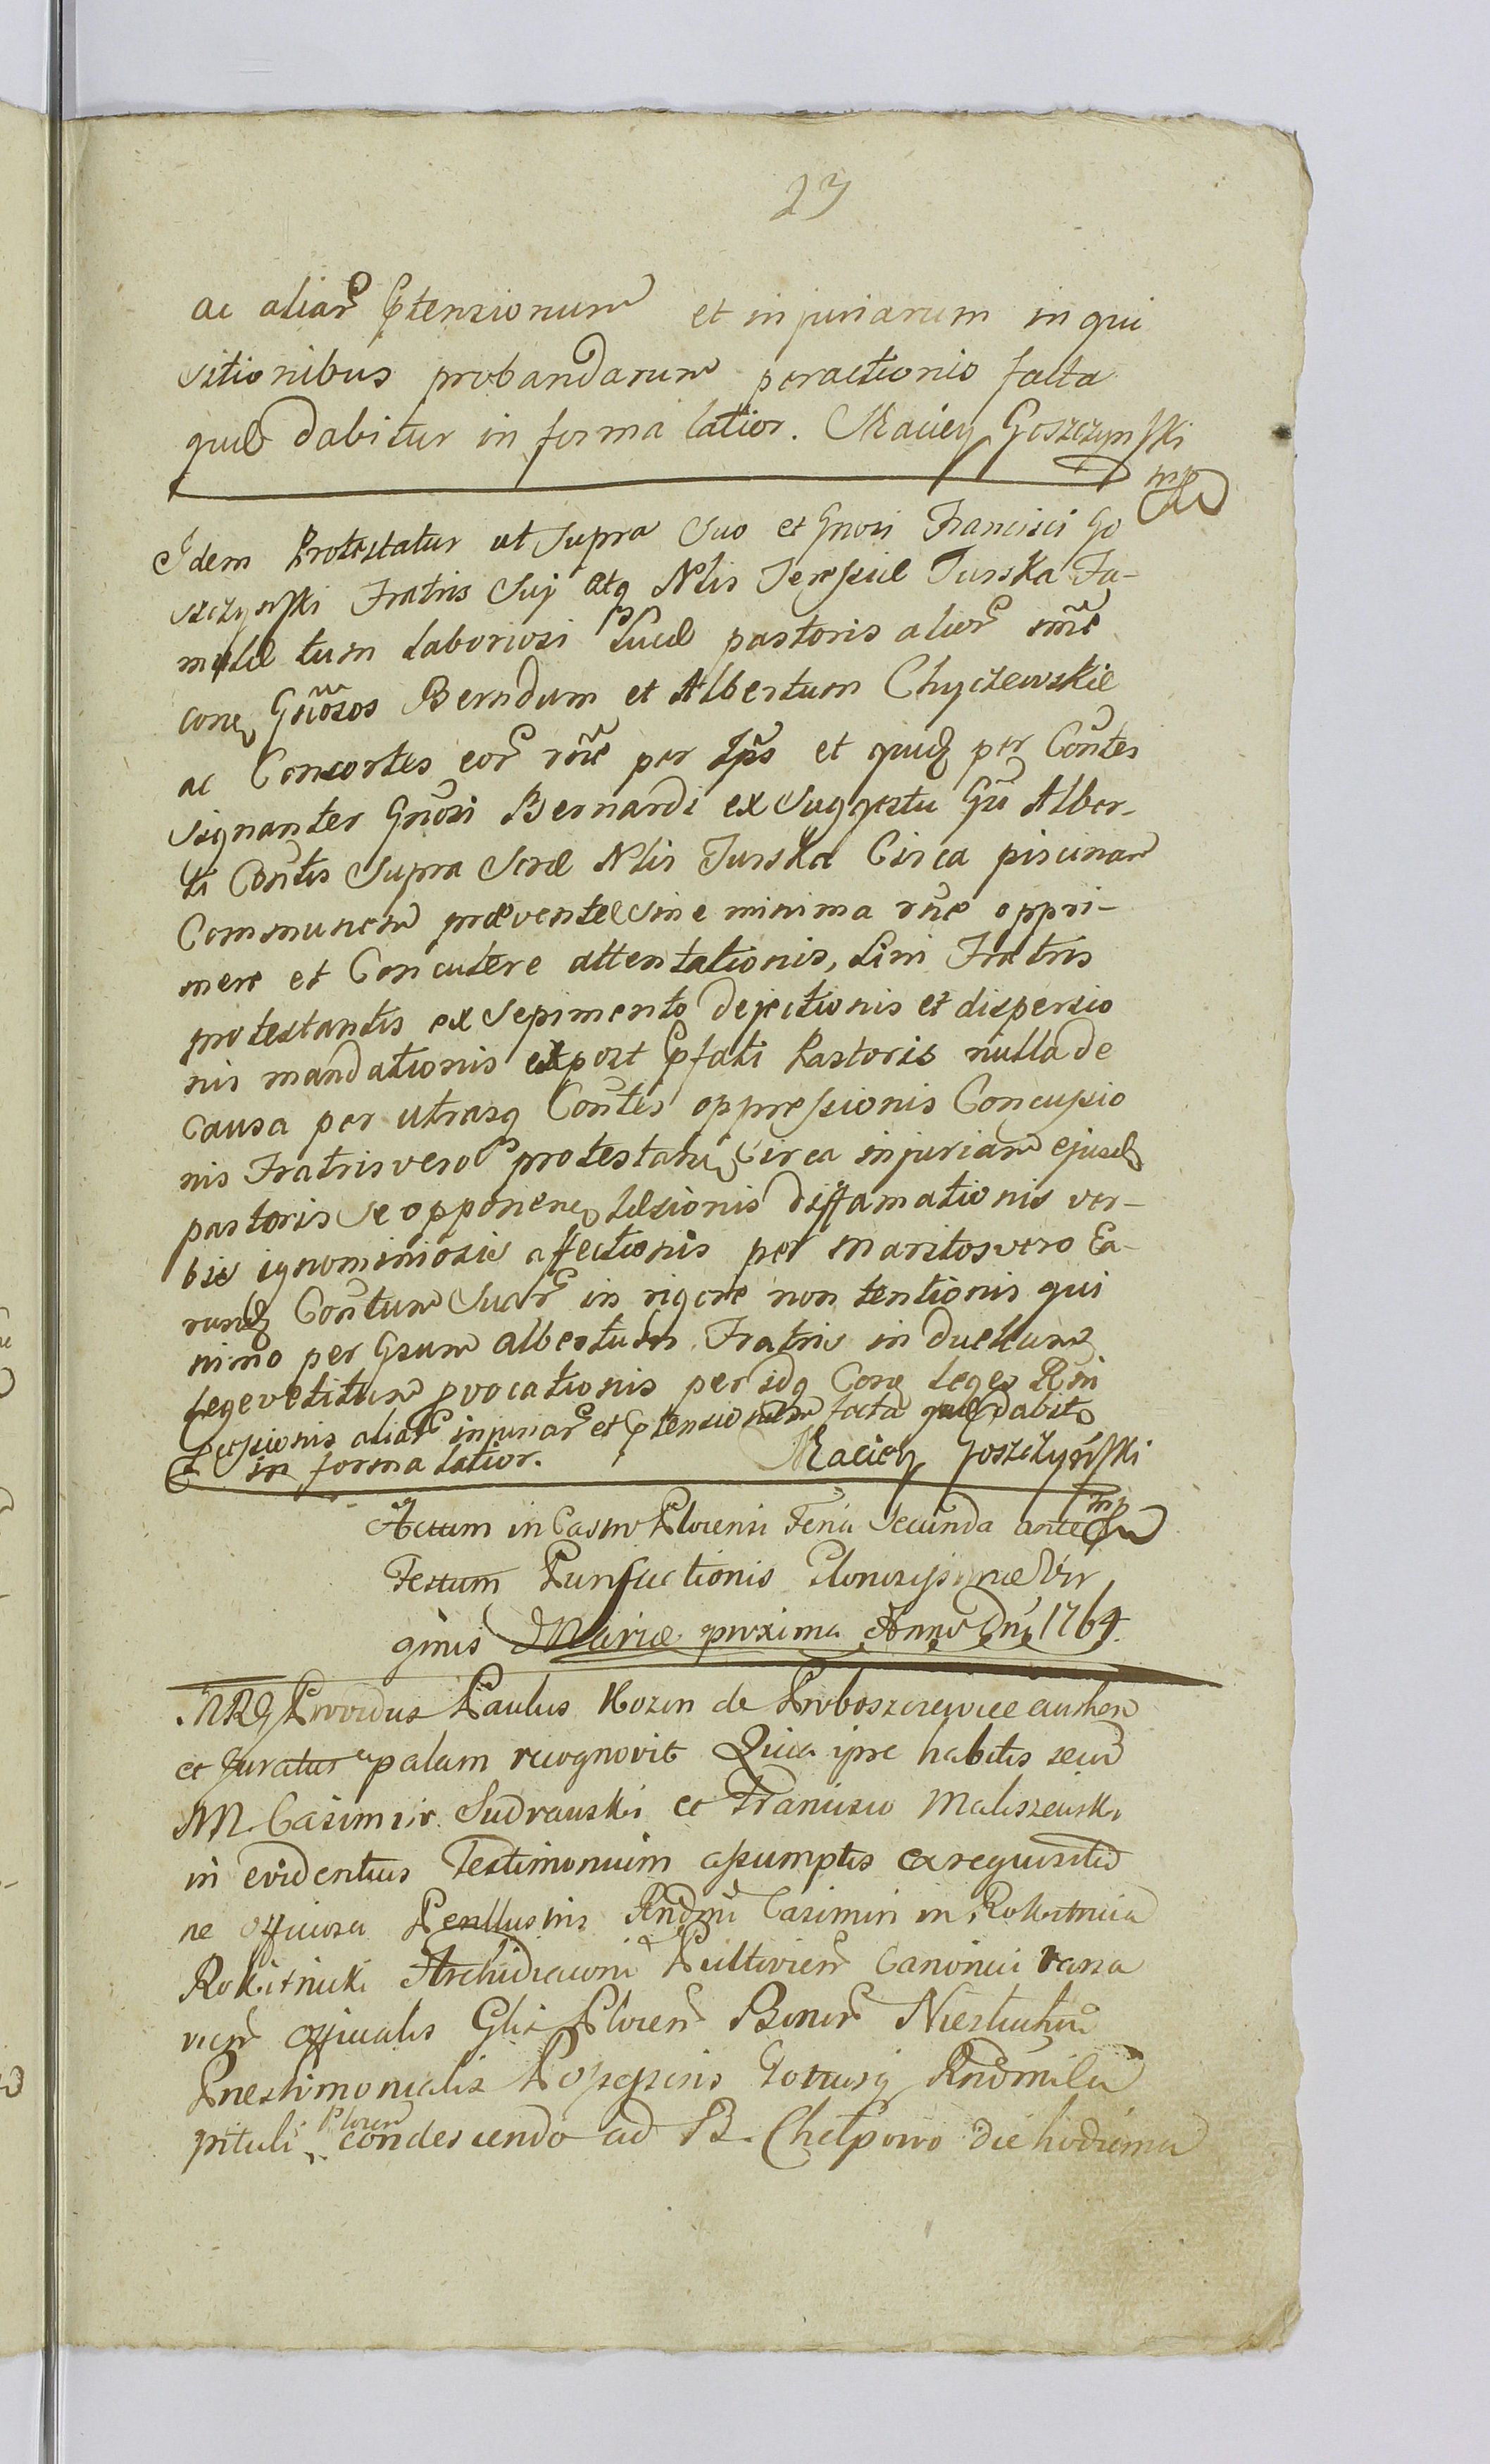 23
ac aliar Ptensionum et injuriarum in qui
sitionibus probandarum peractionis facta
quæ dabitur in forma latior. Maciey Goszczynski
mp
Idem Protestatur ut supra suo et Gnosi Francisci Go
szczynski Fratris Suj atq Nlis Teressiæ Turska Fa-
mulæ tum Laboriosi Lucæ pastoris alior nne
cone Gnosos Berndum et Albertum Chyczewskie
ac Consortes eor rne per Ips et quid per Contes
signanter Gnosi Bernardi ex suggestu Gn Alber-
ti Contis supra Scræ Nlis Turska Circa piscinam
Communem præventæ sine minima rne oppri-
mere et Concutere attentationis, Lini Fratris
protestantis ex sepimento dejectionis et dispersio
nis mandationis et post Pfati Pastoris nulla de
causa per utrasq Contes oppressionis Concussio
nis Fratris vero protestantis Circa injuriam ejusd
pastoris se opponen læsionis diffamationis ver-
bis ignominiosis affectionis per maritos vero Ea-
rund Contum Suar in rigore non tentionis qui
nimo per Gsum Albertum Fratris in duellum
lege vetitum pvocationis per idq Cone leges Rni
pcessionis aliar injuriar et Ptensionum facta quæ dabit
in forma latior. Maciey Goszczyński
mp
Actum in Castro Plocensi Feria Secunda ante
Festum Purificationis Gloriosissimæ Vir
ginis Mariæ proxima Anno Dni 1764.
MRG Providus Paulus Kozen de Proboszczewice authen
et Juratus palam recognovit Quia ipse habitis secu
NN. Casimir Sudrawski et Francisco Maliszewski
in evidentius Testimonium assumptis ex requisitio
ne officiosa Perillustris Rndmi Casimiri in Rokitnica
Rokitnicki Archidiaconi Pultovien Canonici Varsa
vien Officialis Glis Plocen
Posessoris Totiusq Rndmi Ca
pituli Plocen condescendo ad B. Chelpowo die hodierna